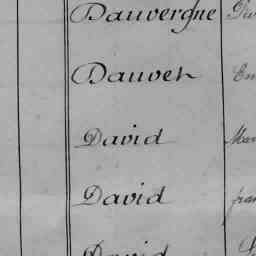 Dauvergne
Dauveh
David
David
David